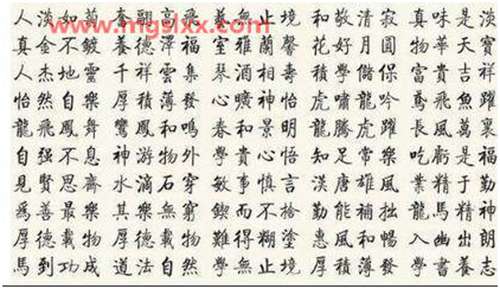 www.mgslxx.com
人淡如萬 奮翮高飛 學無止境 和敬清寂 真味是淡
真金不鍍 厚德澤福 室雅蘭馨 花好月圓 物華天寶
人杰地靈 千祥雲集 琴酒相壽 積學儲保 富貴吉祥
怡然自樂 厚積薄發 心曠神怡 虎嘯龍吟 鳶飛魚躍
龍飛鳳舞 鸞鳳和鳴 春和景明 龍騰虎躍 長風萬裏
自强不息 神游物外 學貴心悟 知足常樂 吃虧是福
見賢思齋 水滴石穿 敏事慎言 漢唐雄風 業精于勤
爲善最樂 其樂無窮 鍥而不捨 勤能補拙 龍馬精神
厚德載物 厚德載物 難得糊塗 惠風和暢 入幽出朗
馬到功成 道法自然 學無止境 厚積薄發 學書養志